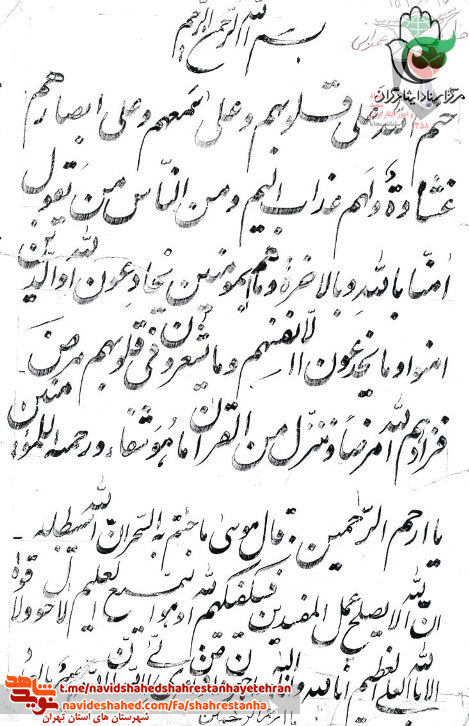 بسم الله الرحمن الرحیم
مرکز اسناد ایثارگران
ختم الله علی قلوبهم وعلی سمعهم وعلی ابصارهم
غشاوة ولهم عذاب الیم ومن الناس من یقول
امنا بالله وبالاخرة وماهم بمومنین یخادعون الله والذین
امنوا وما یخدعون الا انفسهم وما یشعرون فی قلوبهم مرض
فزادهم الله مرضا وننزل من القران ماهو شفاء ورحمة للمؤمنین
یا ارحم الرحمین . قال موسی ما جئتم به السحر ان الله سیبطله
ان الله لا یصلح عمل المفسدین فسیکفیکهم الله وهو السمیع العلیم لاحول ولا قوة
الا بالله العلی العظیم
t.me/navidshahedshahrestanhayetehran
navideshahed.com/fa/shahrestanha
شهرستان های استان تهران